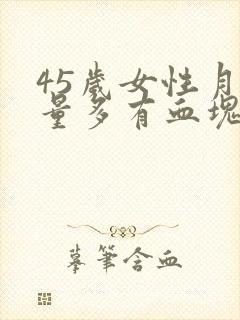 45歲女性月
量多有血塊
摹筆含血